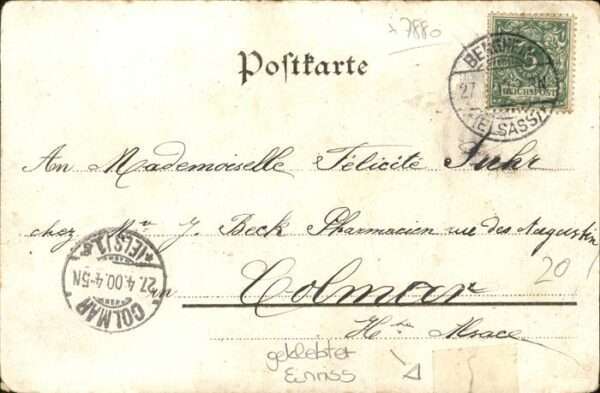 7880
Postkarte
BERGHEIM
27.
(ELSASS)
5
REICHSPOST
An Mademoiselle Félicité Suhr
chez Mr J. Beck Pharmacien rue des Augustin
20
COLMAR
27.4.00.4-5N
*(ELS)1.c
in Colmar
Hte Alsace
geklebter
Einriss